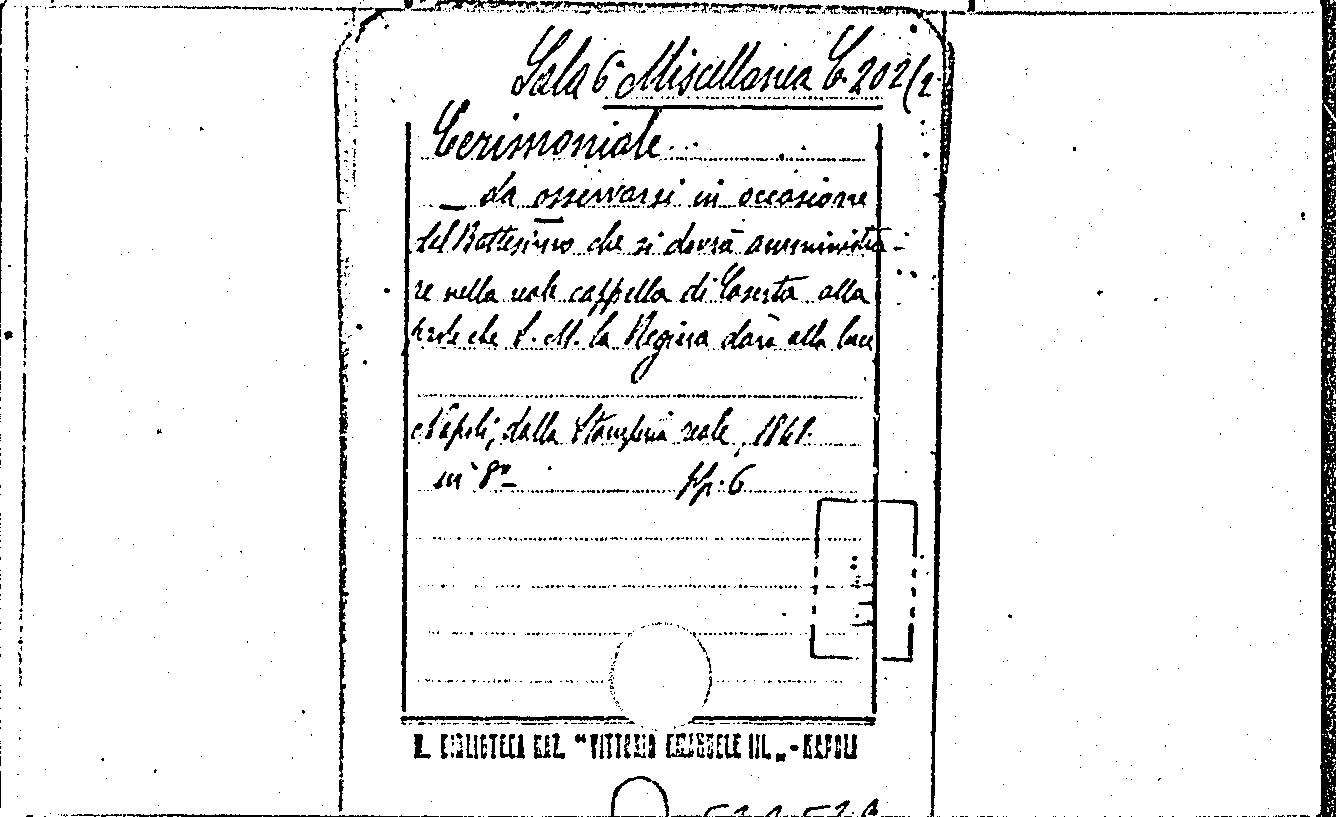 Sala 6ª Miscellanea C. 202/2
Cerimoniale
_ da osservarsi in occasione
del Battesimo che si dovrà amministra-
re nella reale cappella di Caserta alla
prole che S. M. la Regina darà alla luce
Napoli, dalla Stamperia reale, 1841.
in 8º pp. 6
R. BIBLIOTECA NAZ. "VITTORIO EMANUELE III." - NAPOLI